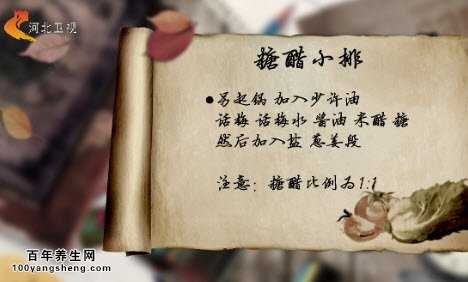 河北卫视
糖醋小排
●另起锅 加入少许油
话梅 话梅水 酱油 米醋 糖
然后加入盐 葱姜段
注意：糖醋比例为1:1
百年养生网
100yangsheng.com